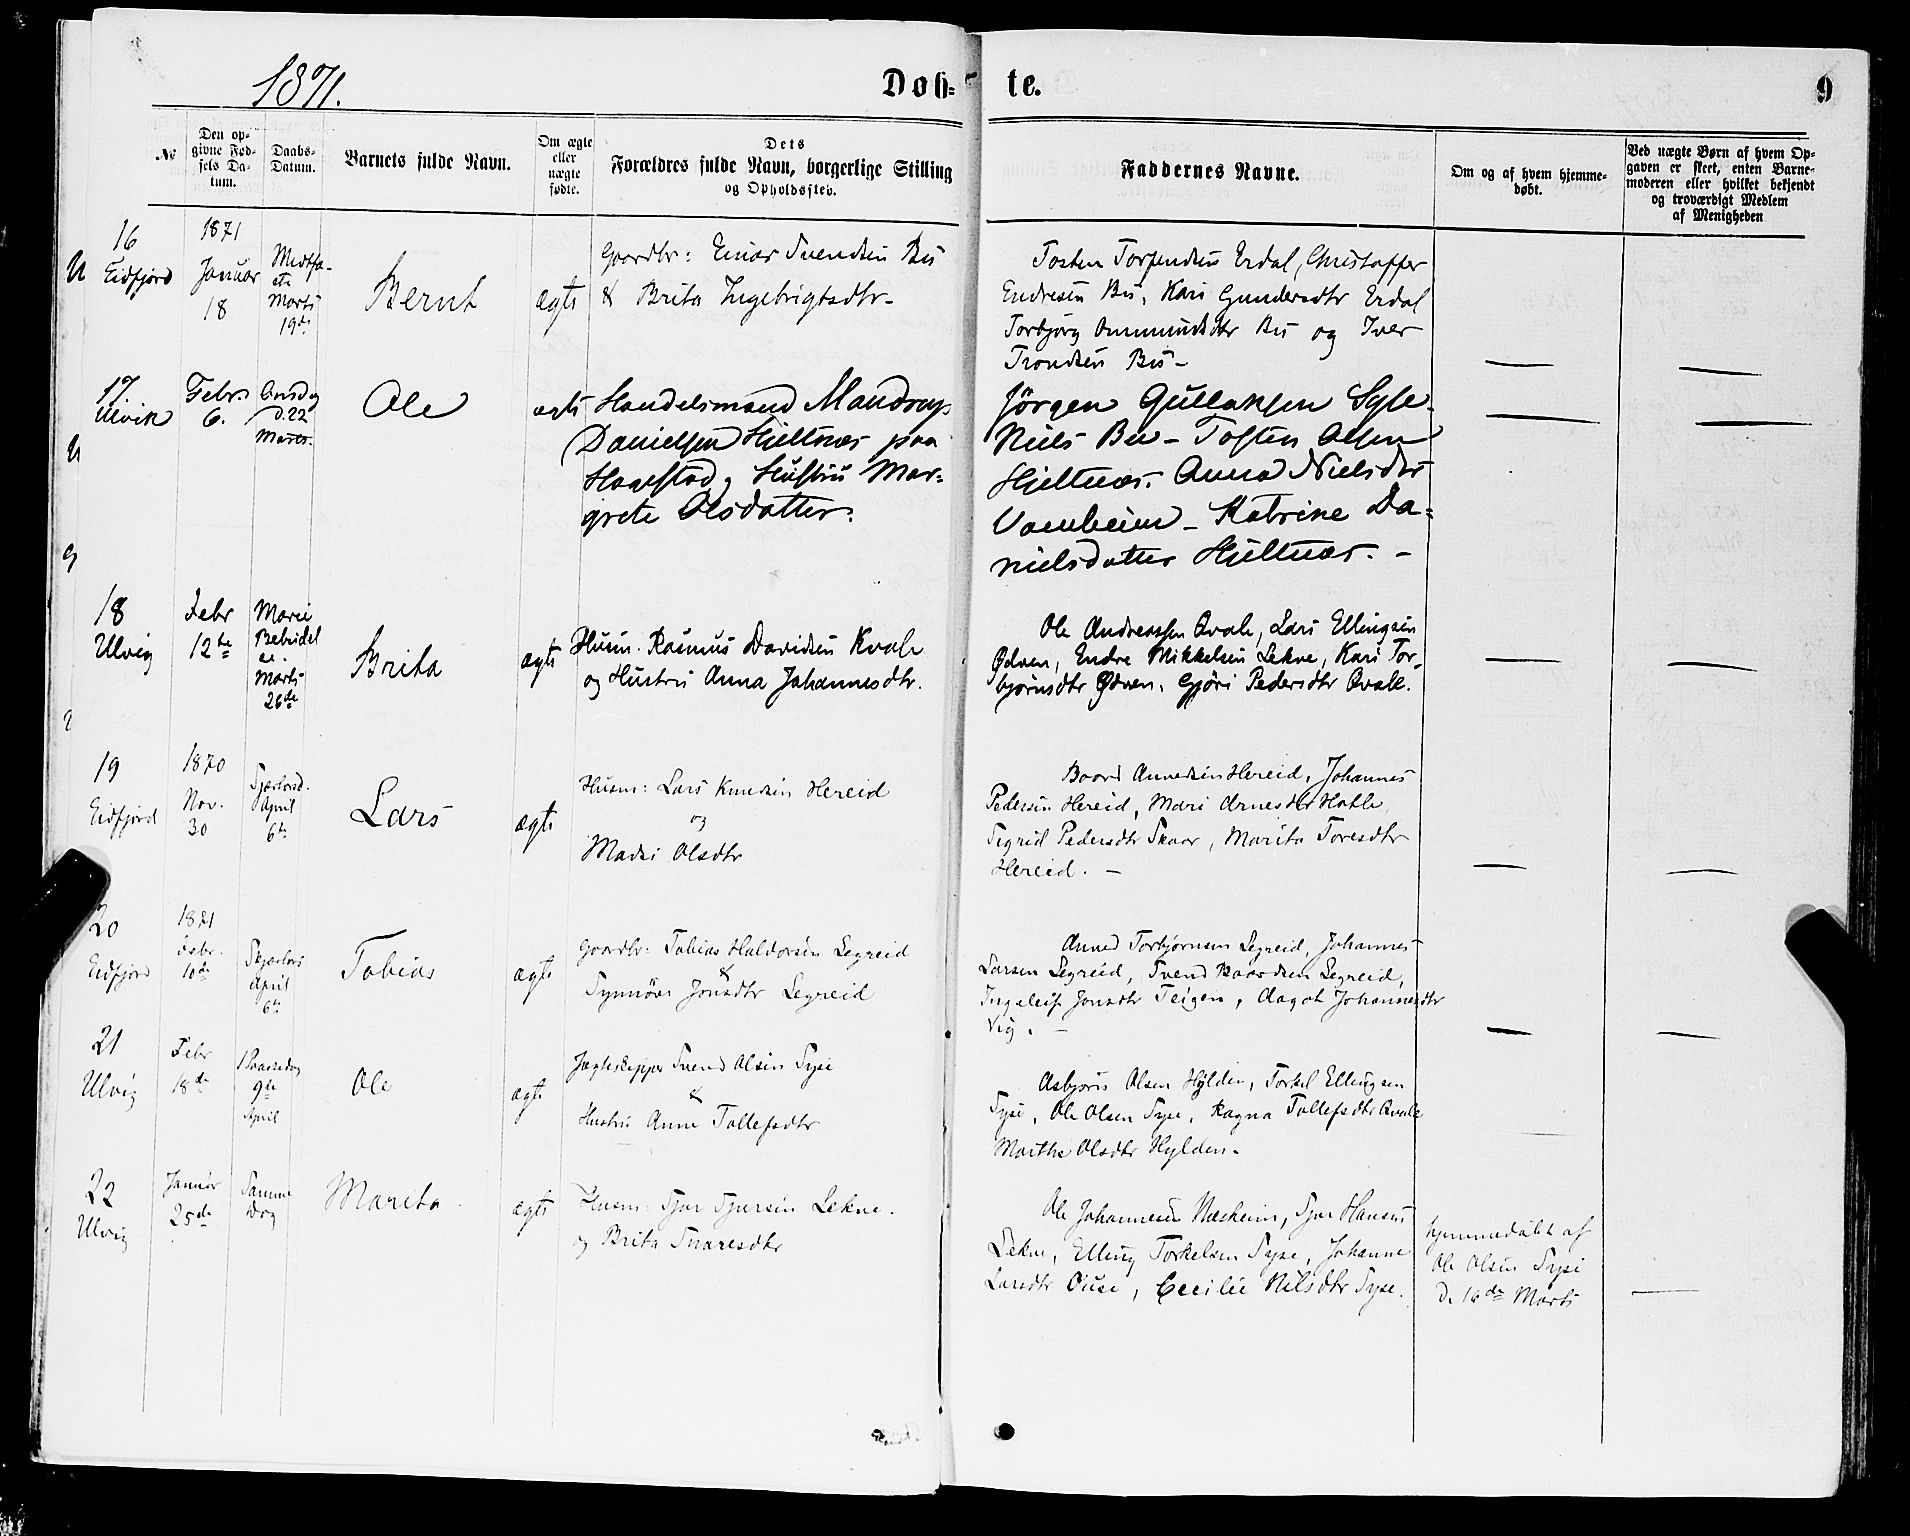 1871.
Døb=
te.
9
№
Den op=
givne Fød=
sels Da=
tum.
Daabs=
Datum.
Barnets fulde Navn.
Om ægte
eller
uægte
fødte.
Dets
Forældres fulde Navn, borgerlige Stilling
og Opholdssted.
Faddernes Navne.
Om og af hvem hjemme=
døbt.
Ved uægte Børn af hvem Op=
gaven er skeet, enten Barne=
moderen eller hvilket bekjendt
og troværdigt Medlem
af Menigheden
16
Eidfjord
1871
Januar
18
Midtfa-
ste
Marts
19de
Bernt
ægte
Gaardbr: Einar Svendsen Bu
& Brita Ingebrigtsdtr-
Tosten Torfindsen Erdal, Christoffer
Endresen Bu, Kari Gundersdtr Erdal
Torbjørg Ommundsdtr Bu og Iver
Trondsen Bu-
17
Ulvik
Febr.
6.
Onsdag
d. 22
Marts.
Ole
ægte
Handelsmand Mandrup
Danielsen Hjeltnæs paa
Haaestad, Hustru Mar=
grete Olsdatter.
Jørgen Gullaksen Syse-
Niels Bu - Tosten Olsen
Hjeltnæs. Anna Nielsdtr
Vambeim - Katrine Da=
nielsdatter Hjeltnæs. -
18
Ulvig
Febr
12te
Marie
Bebudel
se.
Marts
26de
Brita
ægte
Husm. Rasmus Davidsen Kvale
og Hustru Anna Johannesdtr.
Ole Andreassen Qvale, Lars Ellingsen
Ødven, Endre Mikkelsen Lekve, Kari Tor-
bjørnsdtr Ødven, Gjøri Pedersdtr Qvale.
19
Eidfjord
1870
Nov.
30
Skjærtorsd.
April
6te
Lars
ægte
Husm: Lars Knudsen Hereid
og
Madsi Olsdtr
Baard Amundsen Hereid, Johannes
Pedersen Hereid, Mari Arnesdtr Hotle
Sigrid Pedersdtr Skaar, Marita Toresdtr
Hereid. -
20
Eidfjord
1871
Febr.
10de
Skjærtors
April
6te
Tobias
ægte
Gaardbr: Tobias Haldorsen Legreid
&
Synnøve Jonsdtr Legreid
Amund Torbjørnsen Legreid, Johannes
Larsen Legreid, Svend Baardsen Legreid,
Ingeleif Jonsdtr Teigen, Aagot Johannesdtr
Vig. -
21
Ulvig
Febr
18de
1 Paaskedag
9de
April
Ole
ægte
Jægteskipper Svend Olsen Syse
&
Hustru Anna Tollefsdtr
Asbjørn Olsen Hylden, Torkel Ellingsen
Syse, Ole Olsen Syse, Ragna Tollefsdtr Qvale
Marthe Olsdtr Hylden.
22
Ulvig
Januar
25de
Samme
Dag
Marita
ægte
Husm: Sjur Sjursen Lekve.
og Brita Snaresdtr
Ole Johannesen Næsheim, Sjur Hansen
Lekve, Elling Torkelsen Syse, Johanne
Larsdtr Ouse, Cecilie Nilsdtr Syse.
hjemmedøbt af
Ole Olsen Syse
d. 16de Marts